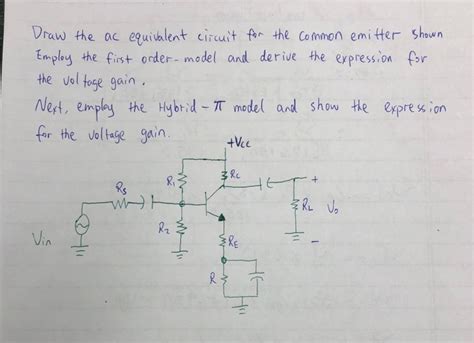 Draw the ac equivalent circuit for the common emitter shown
Employ the first order-model and derive the expression for
the voltage gain.
Next, employ the Hybrid-π model and show the expression
for the voltage gain.
+Vcc
R1
Rc
Rs
+
RL
Vo
R2
Vin
RE
-
R